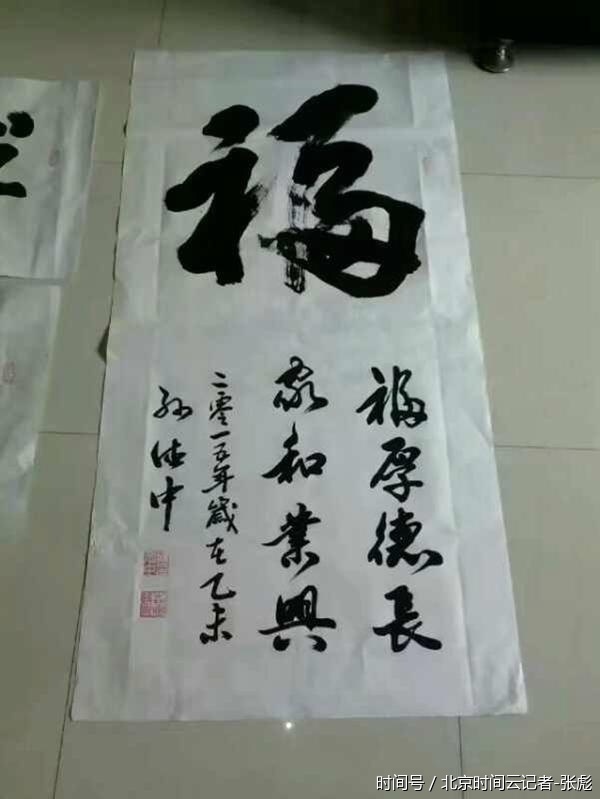 福
福厚德長
家和業興
二零一五年歲在乙未
孙德中
时间号 / 北京时间云记者-张彪